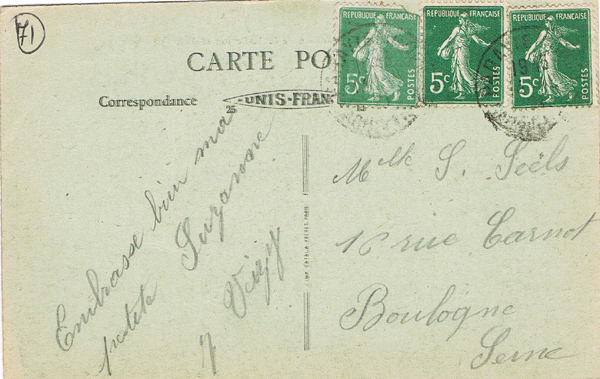 71
CARTE PO
Correspondance
25
UNIS-FRAN
RÉPUBLIQUE FRANÇAISE
5c
POSTES
RÉPUBLIQUE FRANÇAISE
5c
POSTES
RÉPUBLIQUE FRANÇAISE
5c
POSTES
Embrasse bien ma
petite Suzanne
Mlle S.
16 rue Carnot
Boulogne
Seine
IMP. CATALA FRÈRES PARIS